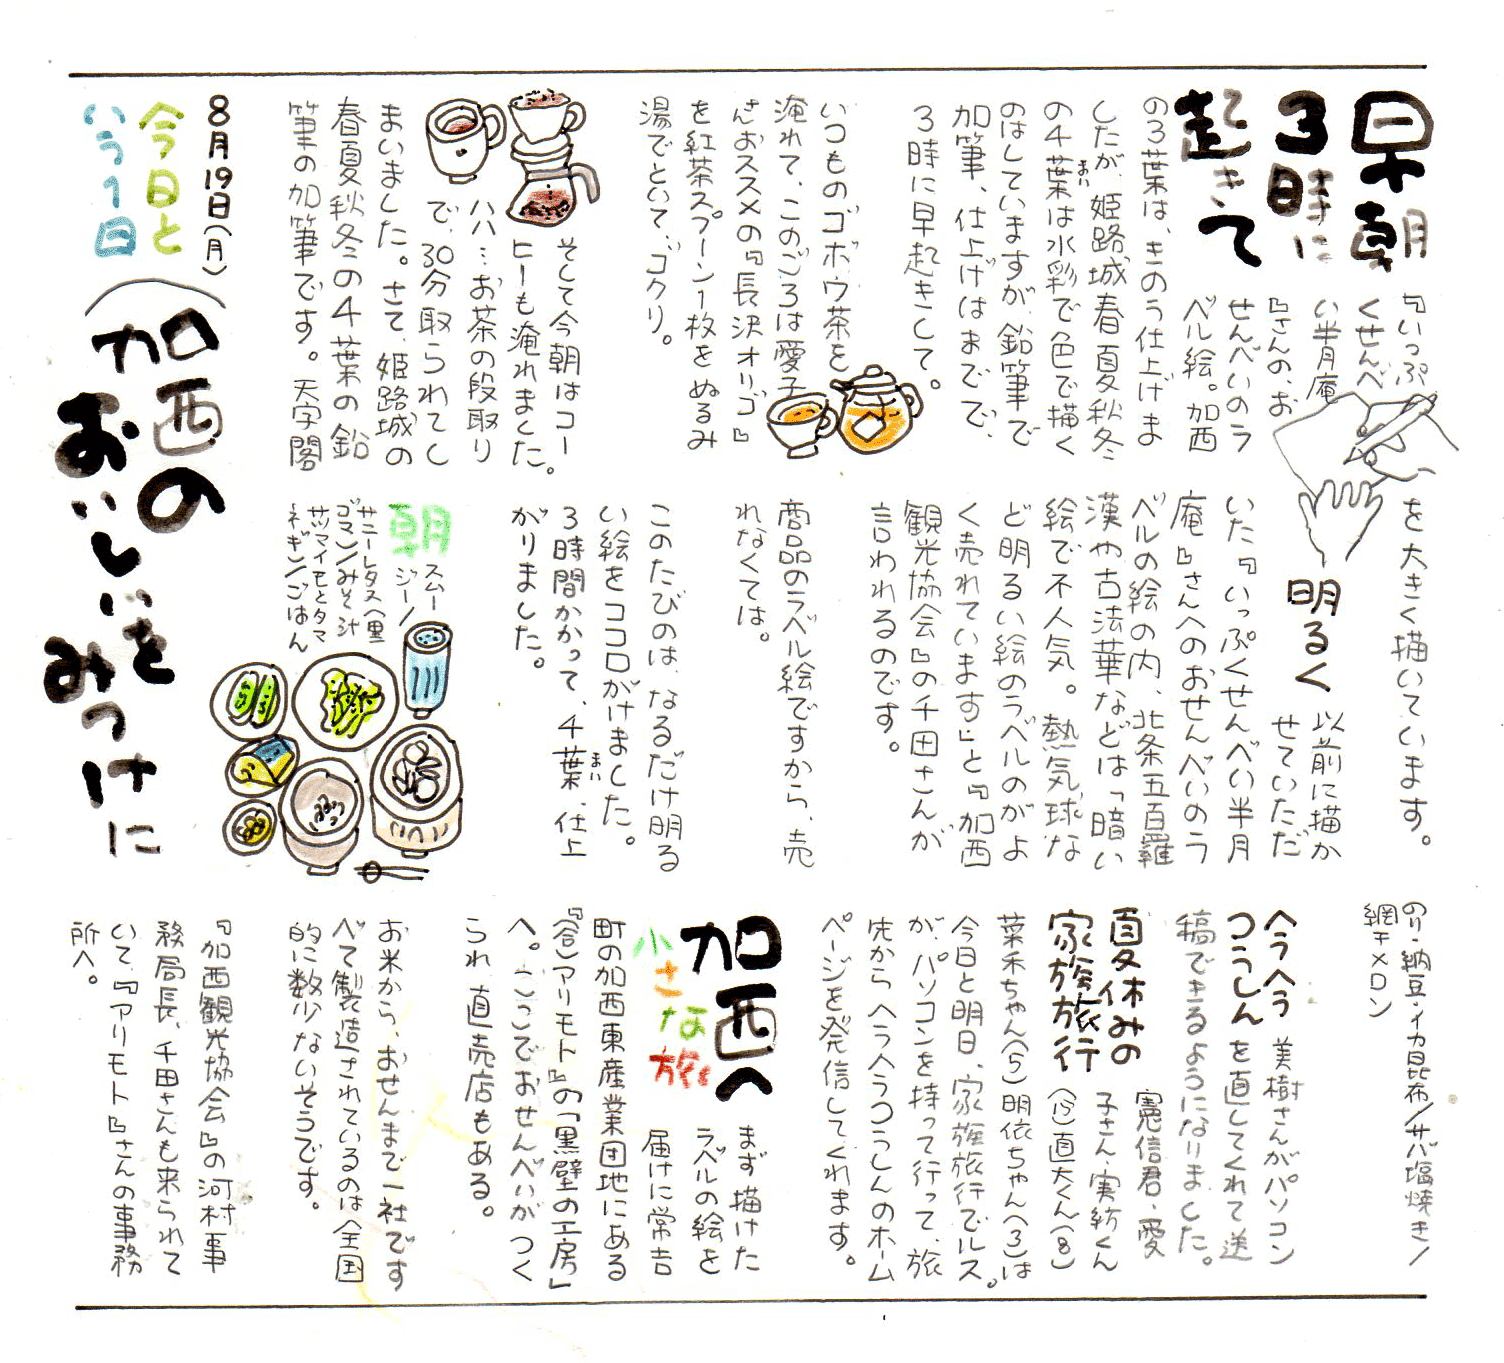 早朝
3時に
起きて
『いっぷ
くせんべ
い半月庵
』さんの、お
せんべいのラ
ベル絵。加西
の3葉は、きのう仕上げま
したが、姫路城春夏秋冬
の4葉は水彩で色で描く
まい
のはしていますが、鉛筆で
加筆、仕上げはまでで、
3時に早起きして。
いつものゴボウ茶を
淹れて、このごろは愛子
さんおススメの『長沢オリゴ』
を紅茶スプーン1枚をぬるみ
湯でといて、ゴクリ。
そして今朝はコー
ヒーも淹れました。
ハハ…お茶の段取り
で、30分取られてし
まいました。さて、姫路城の
春夏秋冬の4葉の鉛
筆の加筆です。天守閣
を大きく描いています。
明るく
以前に描か
せていただ
いた『いっぷくせんべい半月
庵』さんへのおせんべいのラ
ベルの絵の内、北条五百羅
漢や古法華などは「暗い
絵で不人気。熱気球な
ど明るい絵のラベルのがよ
く売れています」と『加西
観光協会』の千田さんが
言われるのです。
商品のラベル絵ですから、売
れなくては。
このたびのは、なるだけ明る
い絵をココロがけました。
3時間かかって、4葉、仕上
まい
がりました。
朝
スムー
ジー/
サニーレタス(里
ゴマン/みそ汁
サツマイモとタマ
ネギン/ごはん
のり・納豆・イカ昆布/サバ塩焼き/
網干メロン
今ヘラ
つうしん
美樹さんがパソコン
を直してくれて送
稿できるようになりました。
夏休みの
家族旅行
憲信君、愛
子さん、実紡くん
(13)直大くん(8)
菜禾ちゃん(5)明依ちゃん(3)は
今日と明日、家族旅行でルス。
が、パソコンを持って行って、旅
先からヘラヘラつうしんのホーム
ページを発信してくれます。
加西へ
小さな旅
まず描けた
ラベルの絵を
届けに常吉
町の加西東産業団地にある
『(合)アリモト』の「黒壁の工房」
へ。ここでおせんべいがつく
られ、直売店もある。
お米から、おせんまで一社です
べて製造されているのは全国
的に数少ないそうです。
『加西観光協会』の河村事
務局長、千田さんも来られて
いて、『アリモト』さんの事務
所へ。
8月19日(月)
今日と
いう1日
加西の
おいしいを
みつけに